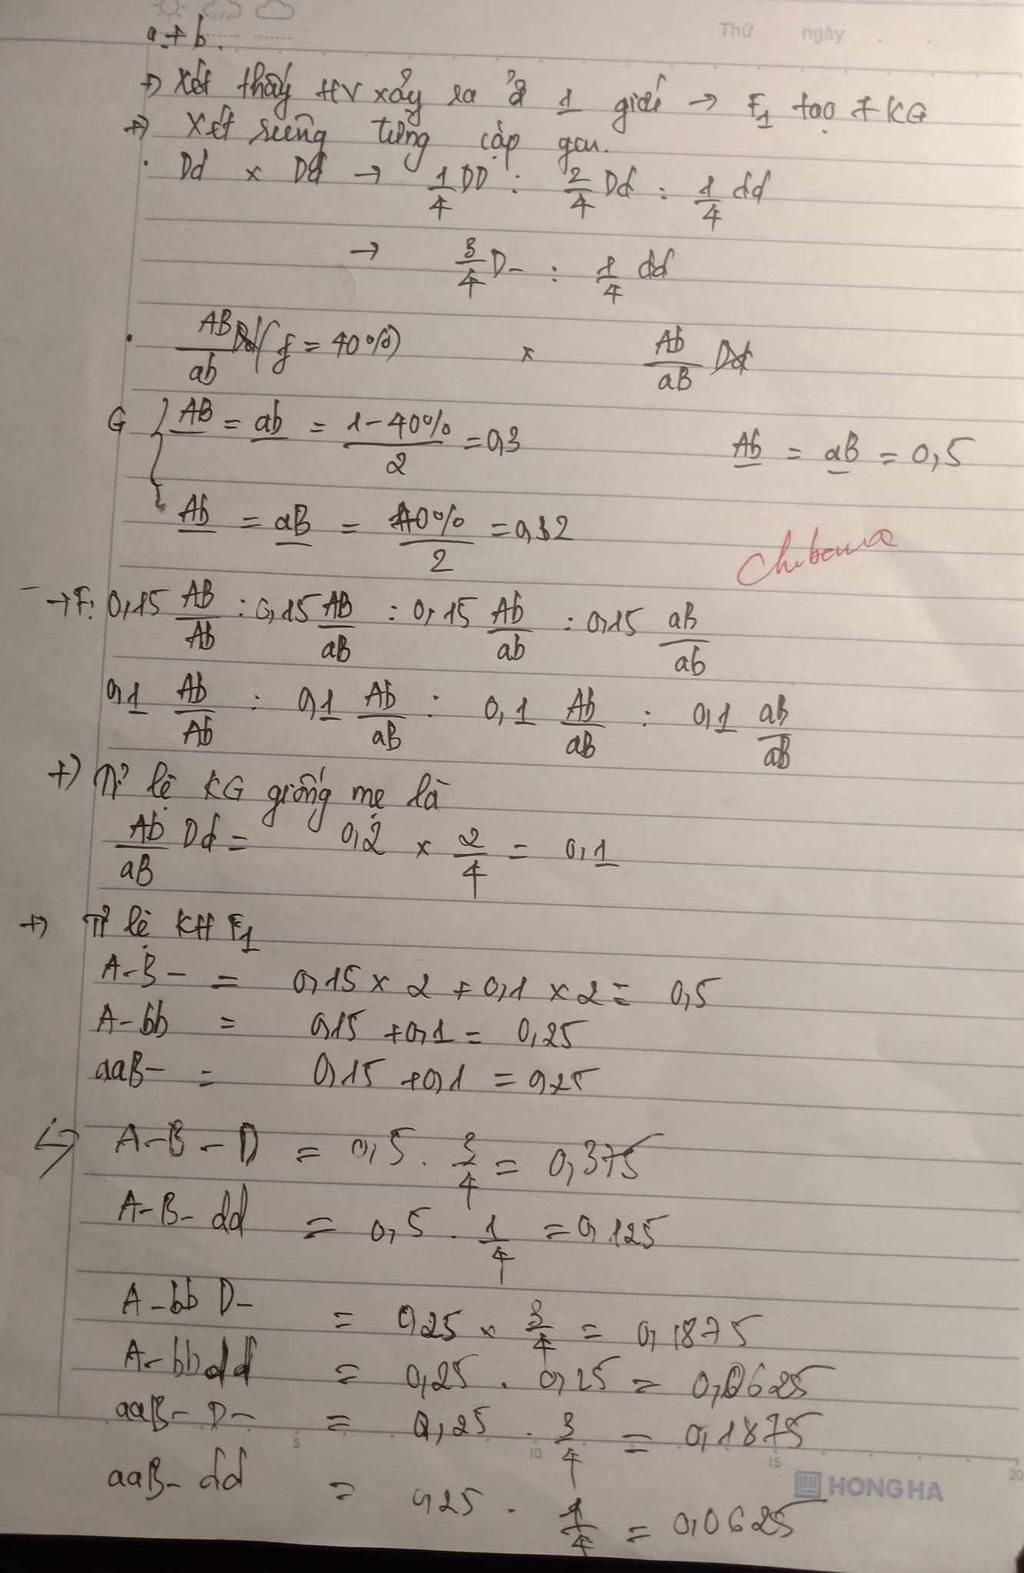 Thứ ngày
a+b.
+) Xét thấy HV xảy ra ở 1 giới → F1 tạo 7 KG
+) Xét riêng từng cặp gen.
· Dd x Dd → 1/4 DD : 2/4 Dd : 1/4 dd
→ 3/4 D- : 1/4 dd
· AB/ab Dd (f = 40%) x Ab/aB Dd
G { AB = ab = 1-40%/2 = 0,3 Ab = aB = 0,5
Ab = aB = 40%/2 = 0,2
→ F: 0,15 AB/Ab : 0,15 AB/aB : 0,15 Ab/ab : 0,15 aB/ab
0,1 Ab/Ab : 0,1 Ab/aB : 0,1 Ab/aB : 0,1 aB/aB
+) Tỉ lệ KG giống mẹ là
Ab/aB Dd = 0,2 x 2/4 = 0,1
+) Tỉ lệ KH F1
A-B- = 0,15 x 2 + 0,1 x 2 = 0,5
A-bb = 0,15 + 0,1 = 0,25
aaB- = 0,15 + 0,1 = 0,25
↳ A-B-D = 0,5 . 3/4 = 0,375
A-B-dd = 0,5 . 1/4 = 0,125
A-bb D- = 0,25 x 3/4 = 0,1875
A-bbdd = 0,25 . 0,25 = 0,0625
aaB-D- = 0,25 . 3/4 = 0,1875
aaB-dd = 0,25 . 1/4 = 0,0625
5 10 15 20
HONG HA